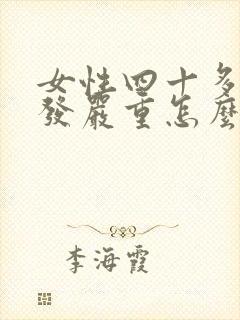 女性四十多
發嚴重怎麼
李海霞